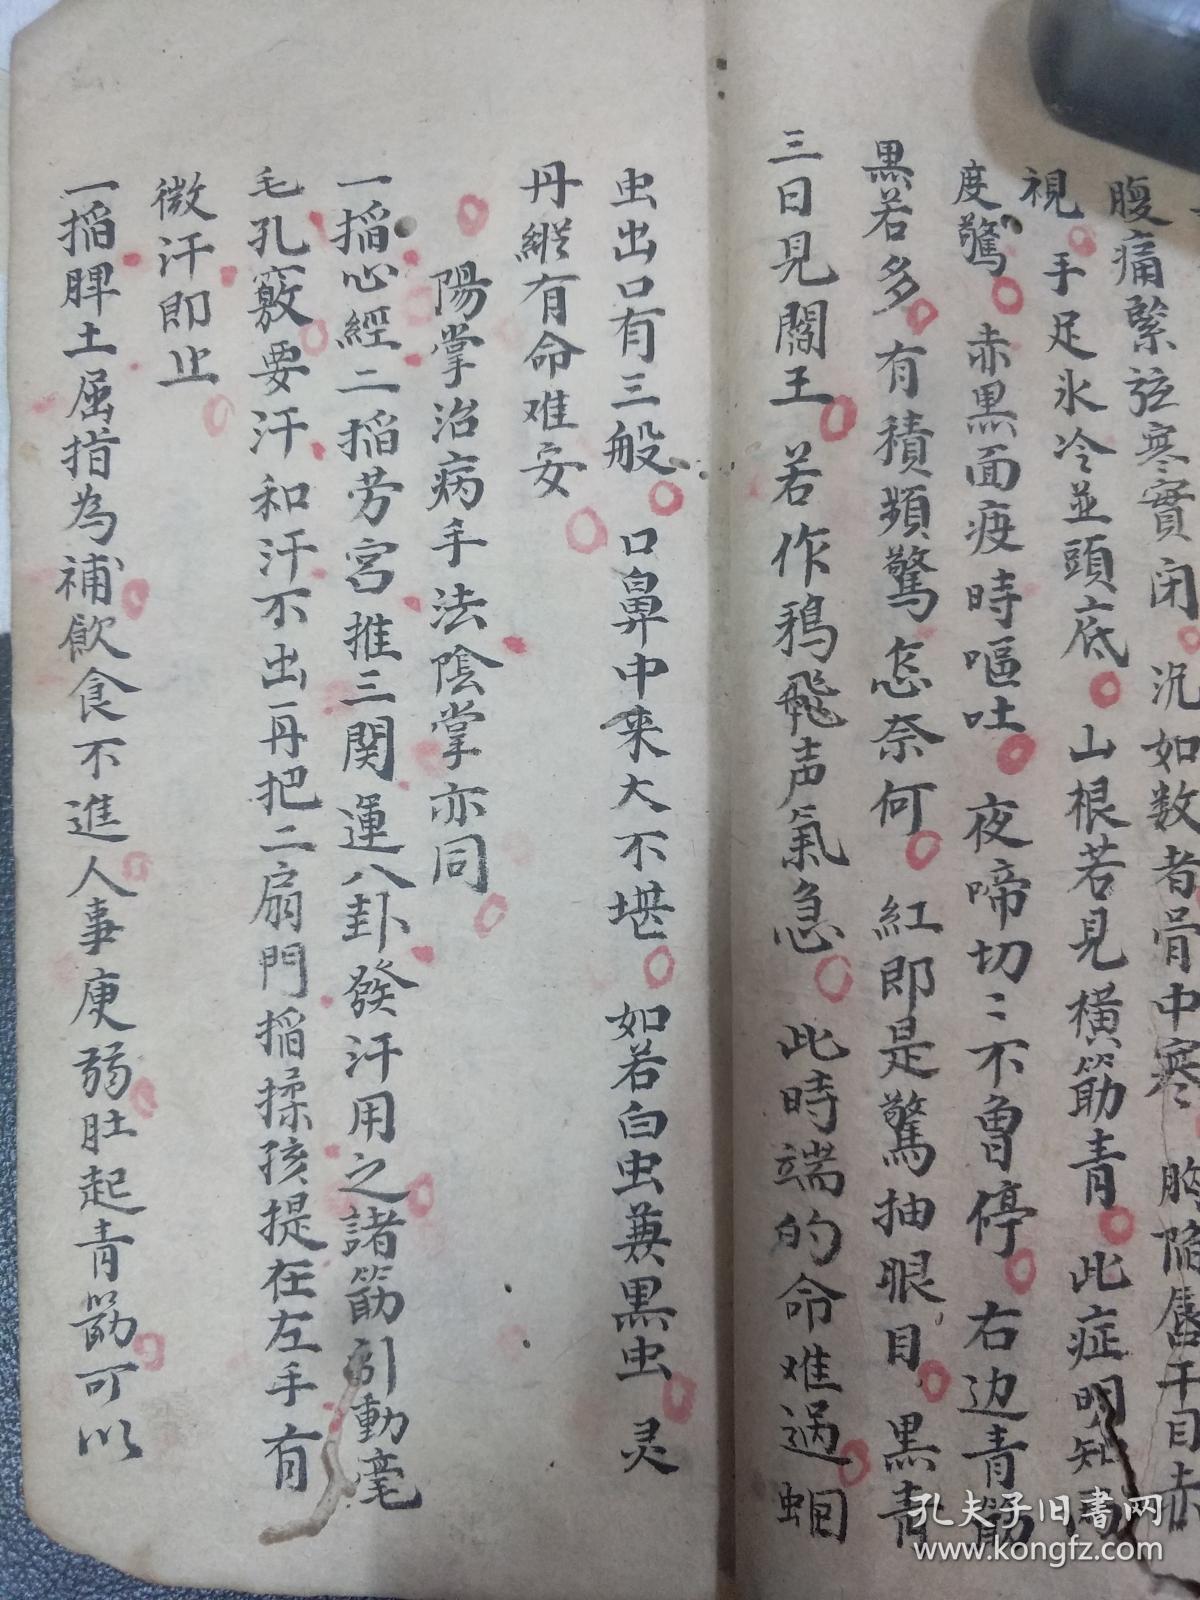 腹痛緊弦寒實閉 沉如数者骨中寒 胸陷唇干目赤
視 手足氷冷並頭底 山根若見横筋青 此症明知两
度驚 赤黒面疫時嘔吐 夜啼切〻不曾停 右边青筋
黒若多 有積頻驚怎奈何 紅即是驚抽眼目 黒青
三日見閻王 若作鴉飛声氣急 此時端的命难过 蛔
虫出口有三般 口鼻中来大不堪 如若白虫兼黒虫 灵
丹縱有命难安
陽掌治病手法陰掌亦同
一掐心經二掐劳宮推三関運八卦發汗用之諸筋引動毫
毛孔竅要汗和汗不出再把二扇門掐揉孩提在左手有
微汗即止
一掐脾土屈指為補飲食不進人事庾弱肚起青筋可以
孔夫子旧书网
www.kongfz.com